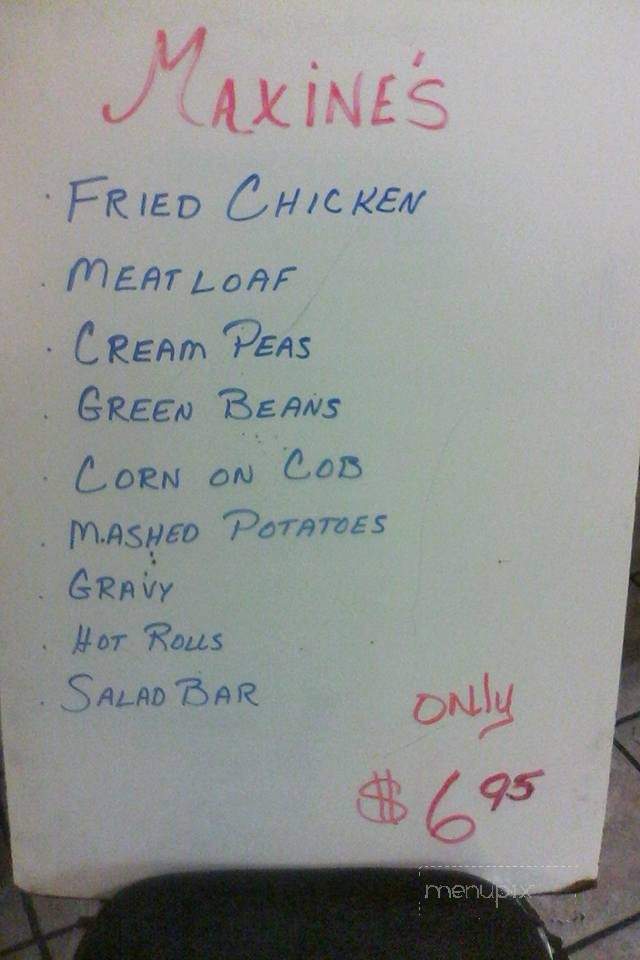 MAXINE'S
· FRIED CHICKEN
· MEATLOAF
· CREAM PEAS
· GREEN BEANS
· CORN ON COB
· MASHED POTATOES
· GRAVY
· HOT ROLLS
· SALAD BAR
ONly
$6 95
menupix